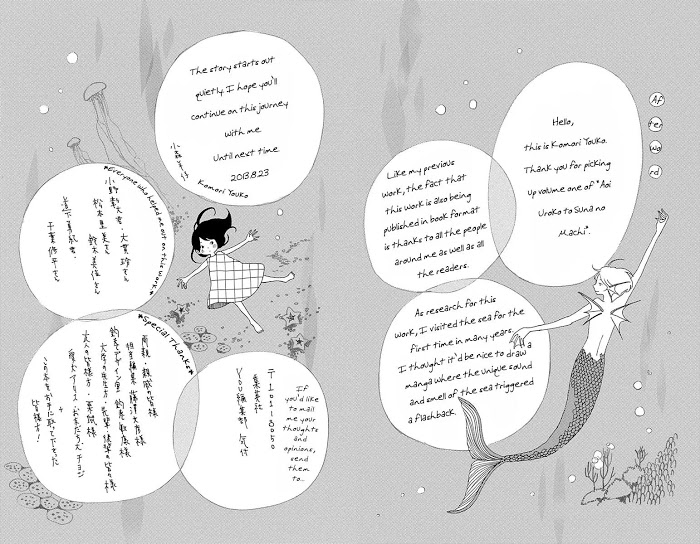 Af
ter
wo
rd
Hello,
this is Komori Youko.
Thank you for picking
up volume one of "Aoi
Uroko to Suna no
Machi".
Like my previous
work, the fact that
this work is also being
published in book format
is thanks to all the people
around me as well as all
the readers.
As research for this
work, I visited the sea for the
first time in many years.
I thought it'd be nice to draw a
manga where the unique sound
and smell of the sea triggered
a flashback.
The story starts out
quietly. I hope you'll
continue on this journey
with me.
Until next time
2013.8.23
Komori Youko
小森羊仔
*Everyone who helped me out on this work.*
松本里美さん
千葉修平さん
*Special Thanks*
両親・親戚の皆様
担当編集
大学の先生方・先輩・後輩の皆々様
友人の皆様方
愛犬アリス・お友だち犬チョコ
この本をお手に取って下さった
皆様方!
If
you'd like
to mail
me your
thoughts
and
opinions,
send
them
to...
〒101-8050
集英社
YOU編集部 気付